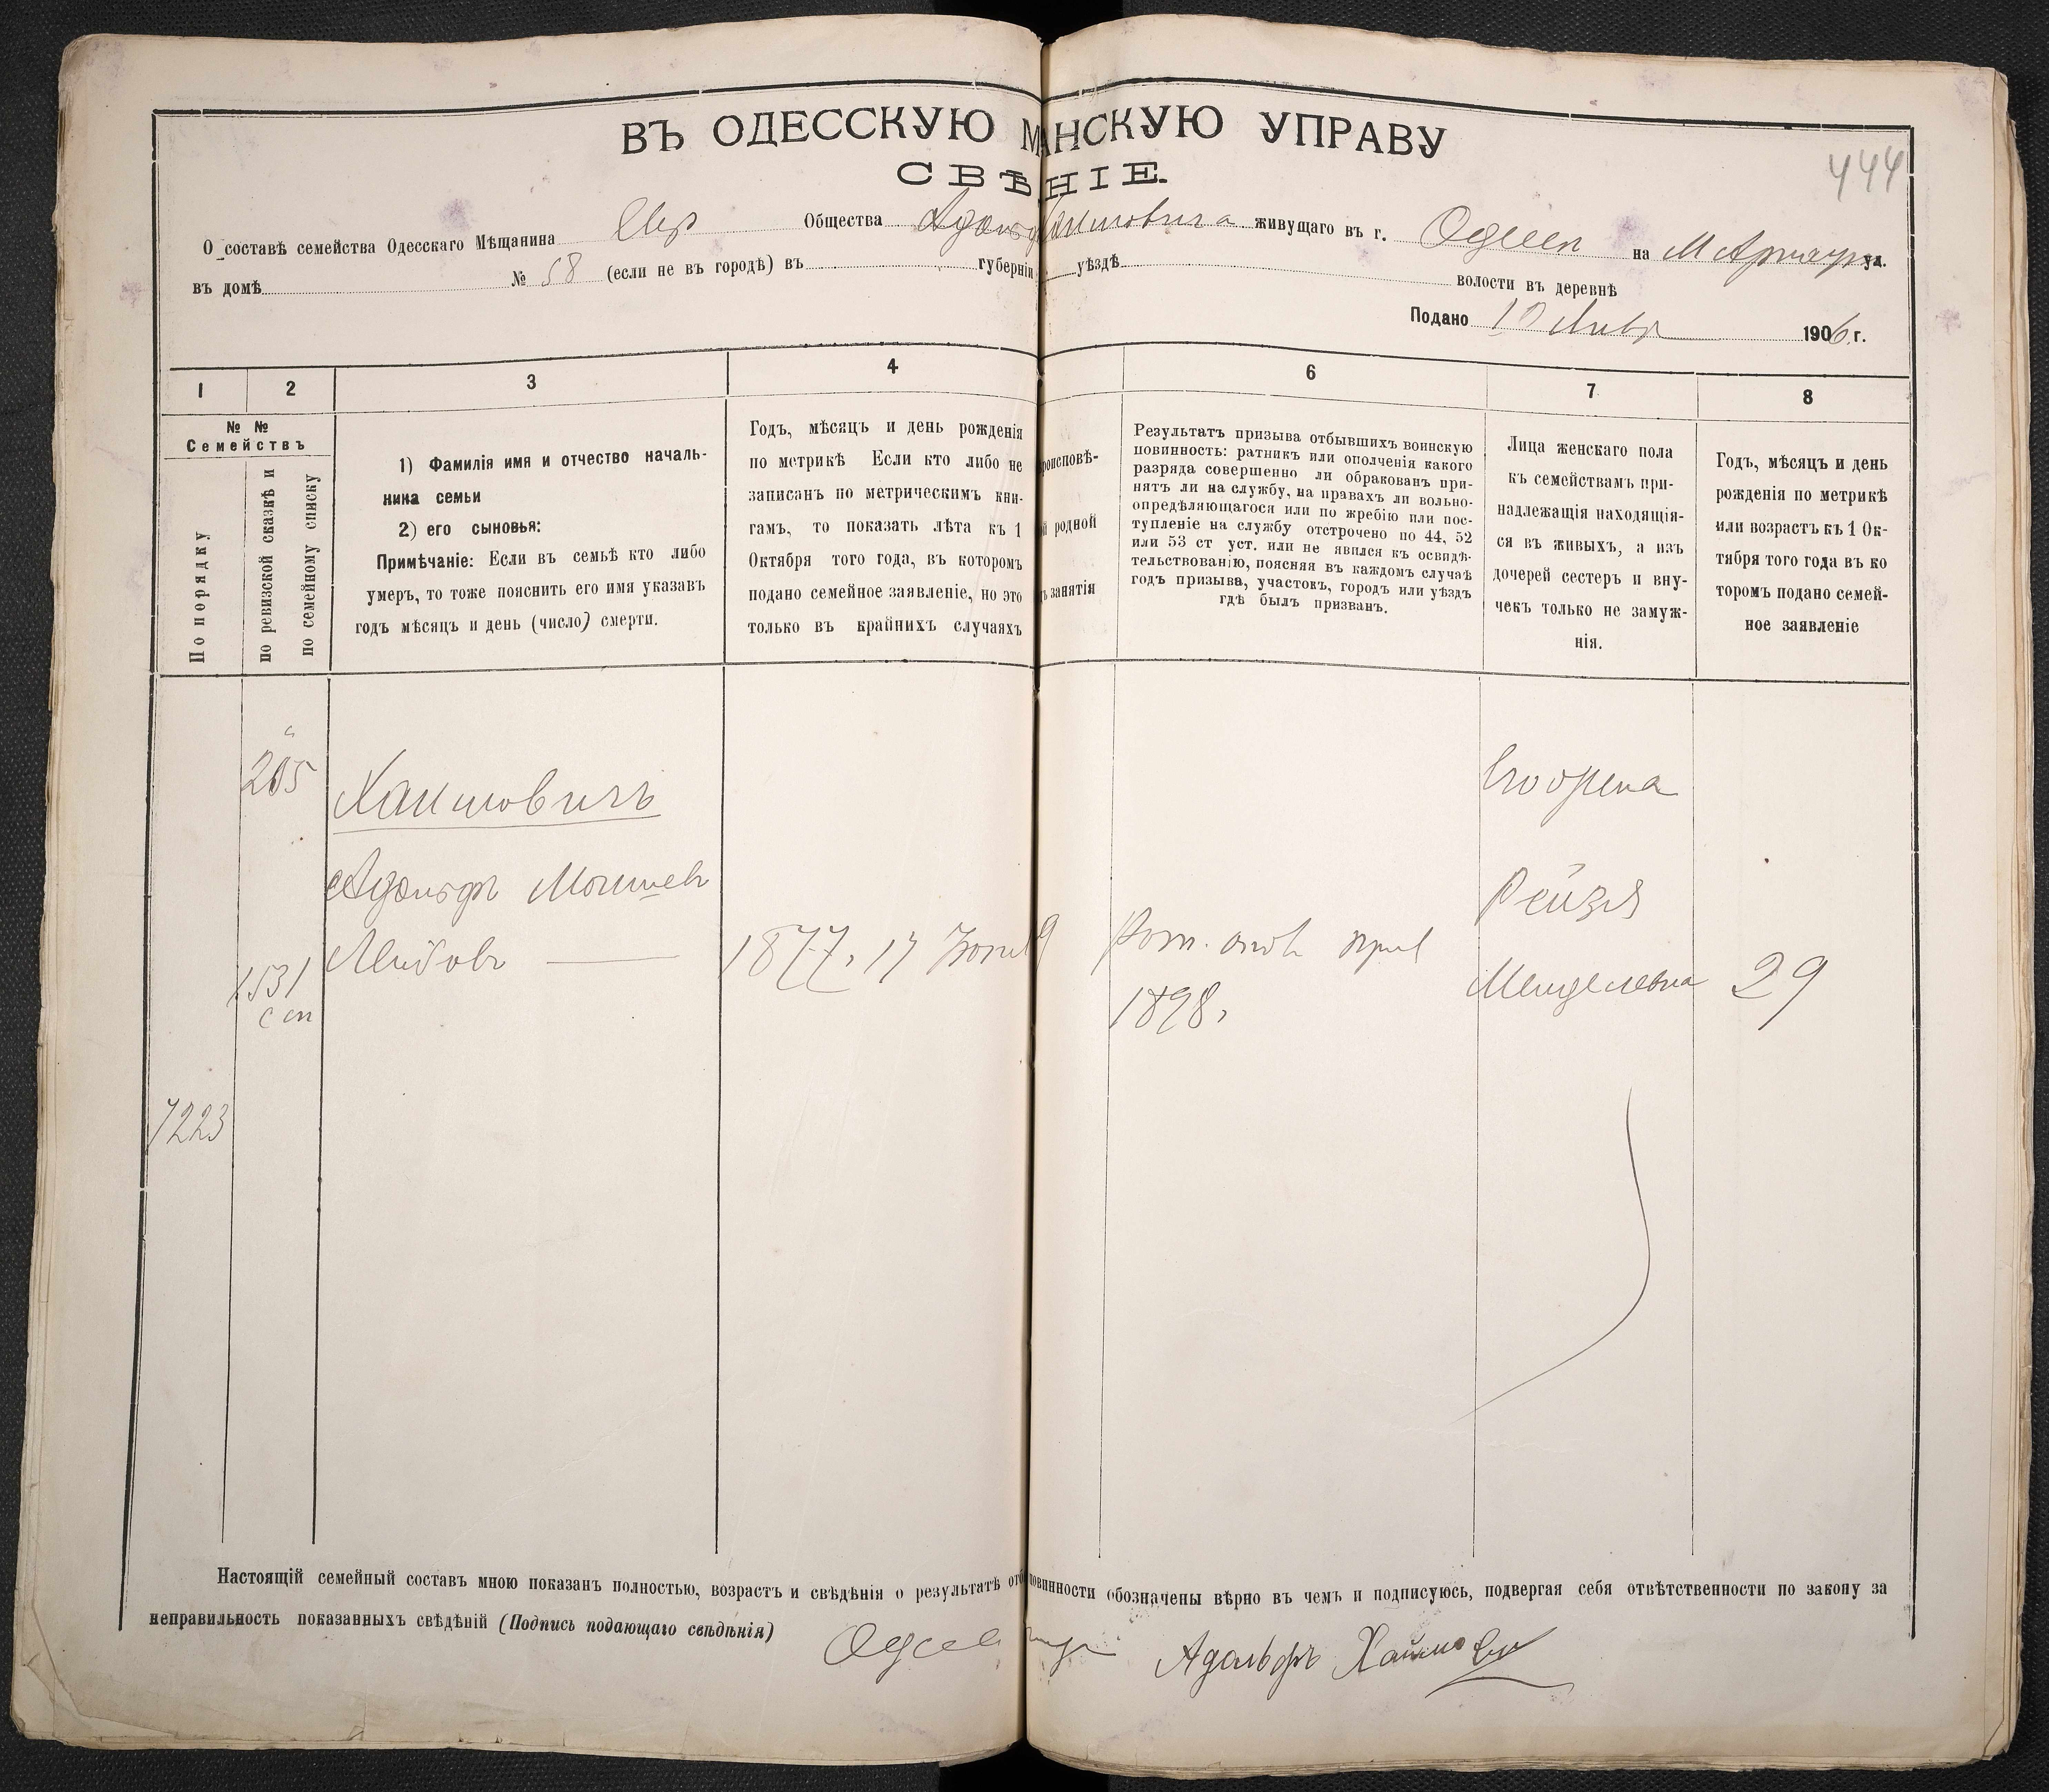 ВЪ ОДЕССКУЮ М АНСКУЮ УПРАВУ
СВѢ НІЕ.
444
О составѣ семейства Одесскаго Мѣщанина Евр Общества Адольф Хаимовича живущаго въ г. Одессѣ на М Арнаут ул.
въ домѣ № 58 (если не въ городѣ) въ губерніи уѣздѣ волости въ деревнѣ
Подано 10 Янвр 1906 г.
1 2 3 4 6 7 8
№ №
Семействъ
По порядку
по ревизской сказкѣ и
по семейному списку
1) Фамилія имя и отчество началь-
ника семьи
2) его сыновья:
Примѣчаніе: Если въ семьѣ кто либо
умеръ, то тоже пояснить его имя указавъ
годъ мѣсяцъ и день (число) смерти.
Годъ, мѣсяцъ и день рожденія
по метрикѣ Если кто либо не
записанъ по метрическимъ кни-
гамъ, то показать лѣта къ 1
Октября того года, въ которомъ
подано семейное заявленіе, но это
только въ крайнихъ случаяхъ
роисповѣ-
й родной
ъ занятія
Результатъ призыва отбывшихъ воинскую
повинность: ратникъ или ополченія какого
разряда совершенно ли обракованъ при-
нятъ ли на службу, на правахъ ли вольно-
опредѣляющагося или по жребію или пос-
тупленіе на службу отстрочено по 44, 52
или 53 ст уст. или не явился къ освидѣ-
тельствованію, поясняя въ каждомъ случаѣ
годъ призыва, участокъ, городъ или уѣздъ
гдѣ былъ призванъ.
Лица женскаго пола
къ семействамъ при-
надлежащія находящія-
ся въ живыхъ, а изъ
дочерей сестеръ и вну-
чекъ только не замуж-
нія.
Годъ, мѣсяцъ и день
рожденія по метрикѣ
или возрастъ къ 1 Ок-
тября того года въ ко
торомъ подано семей-
ное заявленіе
205
Хаимовичъ
Его жена
Адольфъ Мошлев
Рейзя
1531
Лейбовъ
1877, 17
Рат. опол приз
Менделевна
29
с сп
1898,
7223
Настоящій семейный составъ мною показанъ полностью, возрастъ и свѣдѣнія о результатѣ отб повинности обозначены вѣрно въ чемъ и подписуюсь, подвергая себя отвѣтственности по закону за
неправильность показанныхъ свѣдѣній (Подпись подающаго свѣдѣнія)
Адольфъ Хаймович